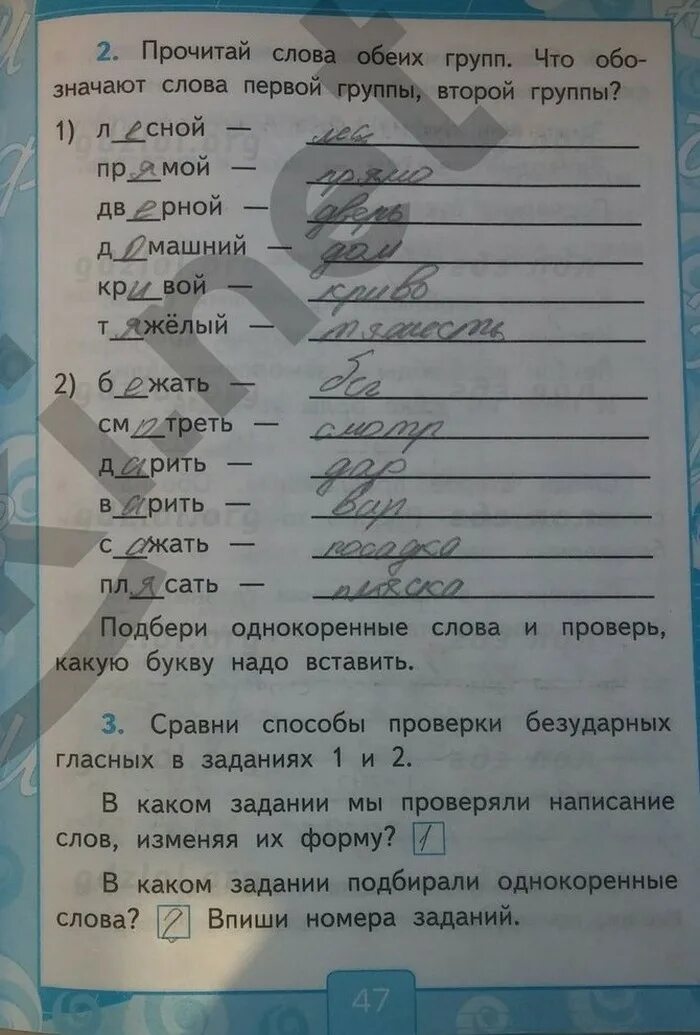 2. Прочитай слова обеих групп. Что обо-
значают слова первой группы, второй группы?
1) лесной — лес
прямой — прямо
дверной — дверь
домашний — дом
кривой — криво
тяжёлый — тяжесть
2) бежать — бег
смотреть — смотр
дарить — дар
варить — вар
сажать — посадка
плясать — пляска
Подбери однокоренные слова и проверь,
какую букву надо вставить.
3. Сравни способы проверки безударных
гласных в заданиях 1 и 2.
В каком задании мы проверяли написание
слов, изменяя их форму? 1
В каком задании подбирали однокоренные
слова? 2 Впиши номера заданий.
47